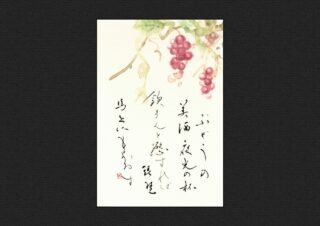 ぶどうの
美酒夜光の杯
飲まんと欲すれば
琵琶
馬上に